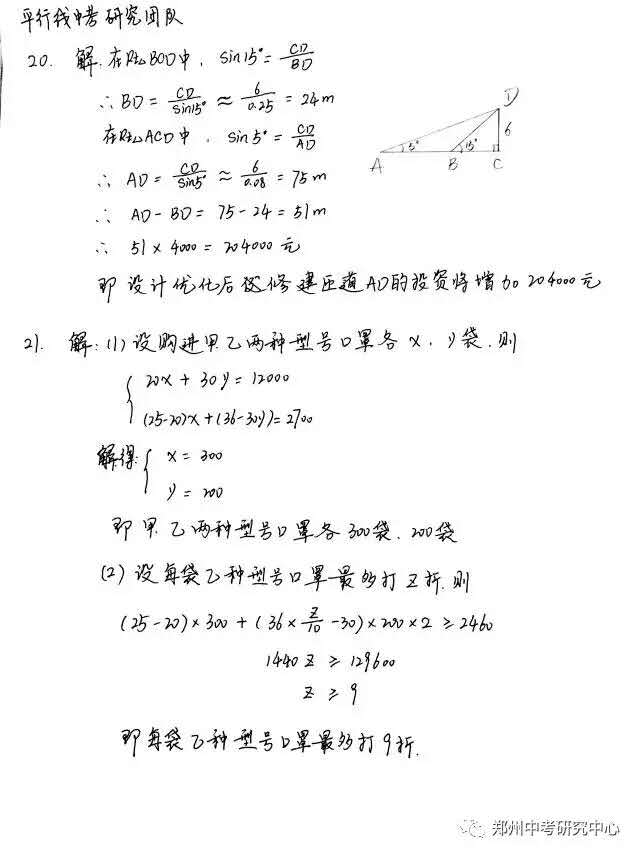 平行线中考研究团队
20. 解:在Rt△BCD中, sin15°=CD/BD
∴ BD = CD/sin15° ≈ 6/0.25 = 24m
在Rt△ACD中, sin5°=CD/AD
∴ AD = CD/sin5° ≈ 6/0.08 = 75m
∴ AD-BD = 75-24 = 51m
∴ 51×4000 = 204000元
即设计优化后修建匝道AD的投资将增加204000元
D
6
5°
15°
A
B
C
21. 解:(1)设购进甲乙两种型号口罩各x, y袋,则
{ 20x + 30y = 12000
(25-20)x+(36-30y)=2700
解得: { x = 300
y = 200
即甲、乙两种型号口罩各300袋、200袋
(2) 设每袋乙种型号口罩最多打z折,则
(25-20)×300 + (36×z/10-30)×200×2 ≥ 2460
1440z ≥ 129600
z ≥ 9
即每袋乙种型号口罩最多打9折.
郑州中考研究中心